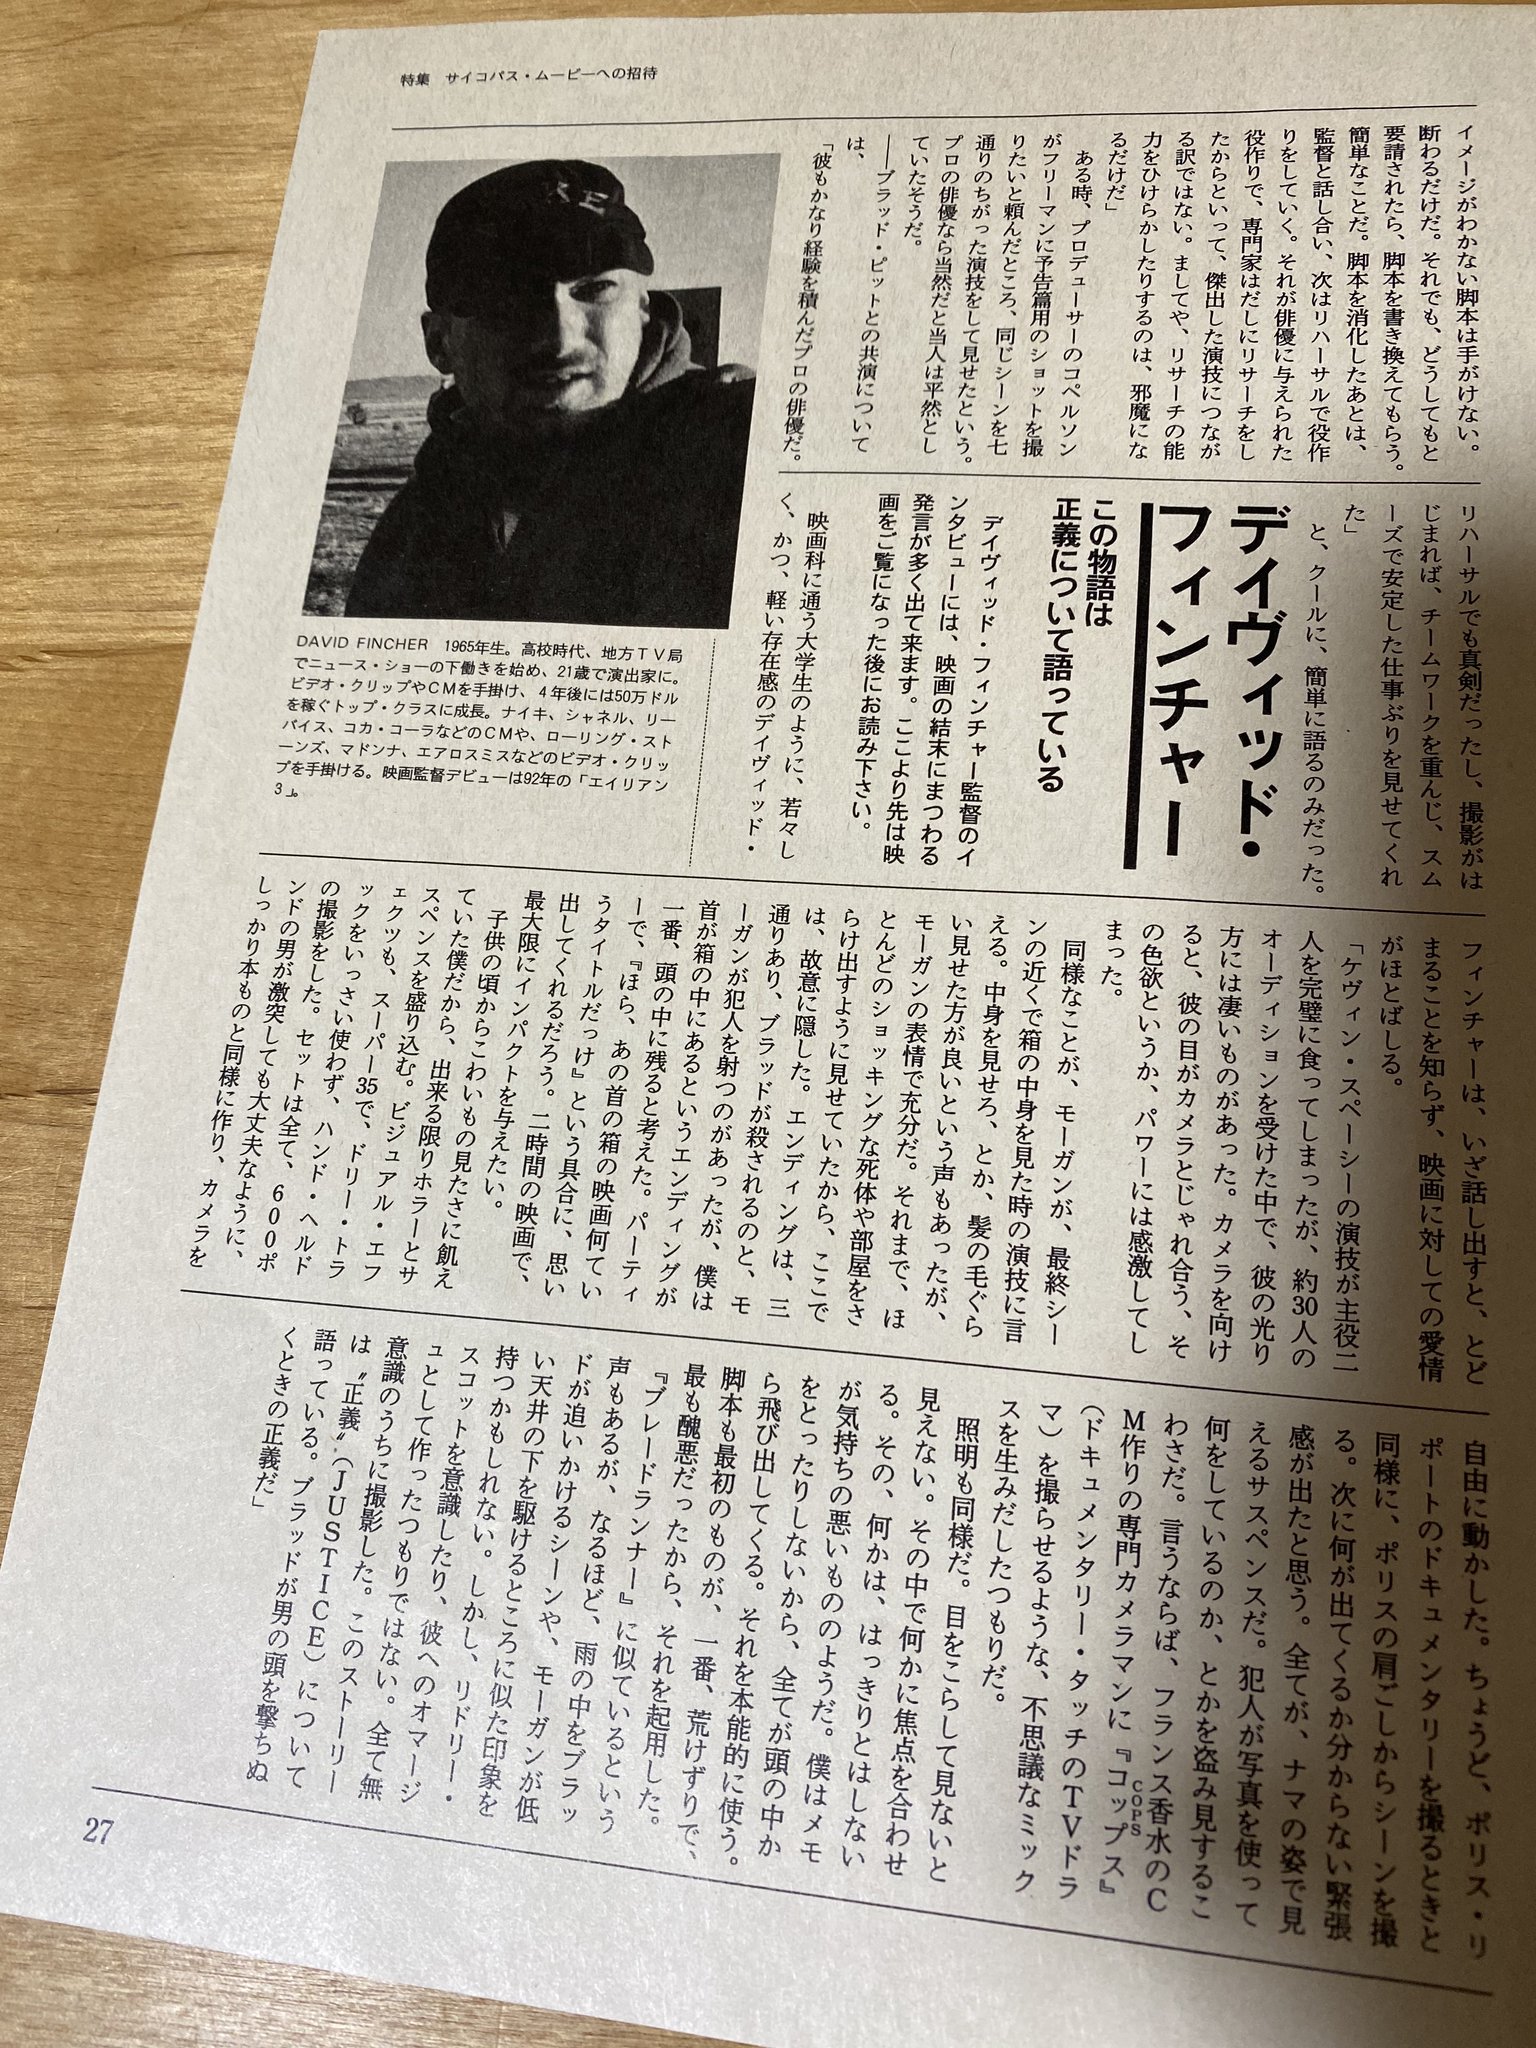 特集　サイコパス・ムービーへの招待
イメージがわかない脚本は手がけない。
断わるだけだ。それでも、どうしてもと
要請されたら、脚本を書き換えてもらう。
簡単なことだ。脚本を消化したあとは、
監督と話し合い、次はリハーサルで役作
りをしていく。それが俳優に与えられた
役作りで、専門家はだしにリサーチをし
たからといって、傑出した演技につなが
る訳ではない。ましてや、リサーチの能
力をひけらかしたりするのは、邪魔にな
るだけだ」
　ある時、プロデューサーのコペルソン
がフリーマンに予告篇用のショットを撮
りたいと頼んだところ、同じシーンを七
通りのちがった演技をして見せたという。
プロの俳優なら当然だと当人は平然とし
ていたそうだ。
――ブラッド・ピットとの共演について
は、
「彼もかなり経験を積んだプロの俳優だ。
リハーサルでも真剣だったし、撮影がは
じまれば、チームワークを重んじ、スム
ーズで安定した仕事ぶりを見せてくれ
た」
　と、クールに、簡単に語るのみだった。
デイヴィッド・
フィンチャー
この物語は
正義について語っている
　デイヴィッド・フィンチャー監督のイ
ンタビューには、映画の結末にまつわる
発言が多く出て来ます。ここより先は映
画をご覧になった後にお読み下さい。
　映画科に通う大学生のように、若々し
く、かつ、軽い存在感のデイヴィッド・
DAVID FINCHER　1965年生。高校時代、地方ＴＶ局
でニュース・ショーの下働きを始め、21歳で演出家に。
ビデオ・クリップやＣＭを手掛け、４年後には50万ドル
を稼ぐトップ・クラスに成長。ナイキ、シャネル、リー
バイス、コカ・コーラなどのＣＭや、ローリング・スト
ーンズ、マドンナ、エアロスミスなどのビデオ・クリッ
プを手掛ける。映画監督デビューは92年の「エイリアン
３」。
フィンチャーは、いざ話し出すと、とど
まることを知らず、映画に対しての愛情
がほとばしる。
「ケヴィン・スペーシーの演技が主役二
人を完璧に食ってしまったが、約30人の
オーディションを受けた中で、彼の光り
方には凄いものがあった。カメラを向け
ると、彼の目がカメラとじゃれ合う、そ
の色欲というか、パワーには感激してし
まった。
　同様なことが、モーガンが、最終シー
ンの近くで箱の中身を見た時の演技に言
える。中身を見せろ、とか、髪の毛ぐら
い見せた方が良いという声もあったが、
モーガンの表情で充分だ。それまで、ほ
とんどのショッキングな死体や部屋をさ
らけ出すように見せていたから、ここで
は、故意に隠した。エンディングは、三
通りあり、ブラッドが殺されるのと、モ
ーガンが犯人を射つのがあったが、僕は
首が箱の中にあるというエンディングが
一番、頭の中に残ると考えた。パーティ
ーで、『ほら、あの首の箱の映画何てい
うタイトルだっけ』という具合に、思い
出してくれるだろう。二時間の映画で、
最大限にインパクトを与えたい。
　子供の頃からこわいもの見たさに飢え
ていた僕だから、出来る限りホラーとサ
スペンスを盛り込む。ビジュアル・エフ
ェクツも、スーパー35で、ドリー・トラ
ックをいっさい使わず、ハンド・ヘルド
の撮影をした。セットは全て、６００ポ
ンドの男が激突しても大丈夫なように、
しっかり本ものと同様に作り、カメラを
自由に動かした。ちょうど、ポリス・リ
ポートのドキュメンタリーを撮るときと
同様に、ポリスの肩ごしからシーンを撮
る。次に何が出てくるか分からない緊張
感が出たと思う。全てが、ナマの姿で見
えるサスペンスだ。犯人が写真を使って
何をしているのか、とかを盗み見するこ
わさだ。言うならば、フランス香水のＣ
Ｍ作りの専門カメラマンに『コップス』
COPS
（ドキュメンタリー・タッチのＴＶドラ
マ）を撮らせるような、不思議なミック
スを生みだしたつもりだ。
　照明も同様だ。目をこらして見ないと
見えない。その中で何かに焦点を合わせ
る。その、何かは、はっきりとはしない
が気持ちの悪いもののようだ。僕はメモ
をとったりしないから、全てが頭の中か
ら飛び出してくる。それを本能的に使う。
脚本も最初のものが、一番、荒けずりで、
最も醜悪だったから、それを起用した。
『ブレードランナー』に似ているという
声もあるが、なるほど、雨の中をブラッ
ドが追いかけるシーンや、モーガンが低
い天井の下を駆けるところに似た印象を
持つかもしれない。しかし、リドリー・
スコットを意識したり、彼へのオマージ
ュとして作ったつもりではない。全て無
意識のうちに撮影した。このストーリー
は〝正義〟（ＪＵＳＴＩＣＥ）について
語っている。ブラッドが男の頭を撃ちぬ
くときの正義だ」
27